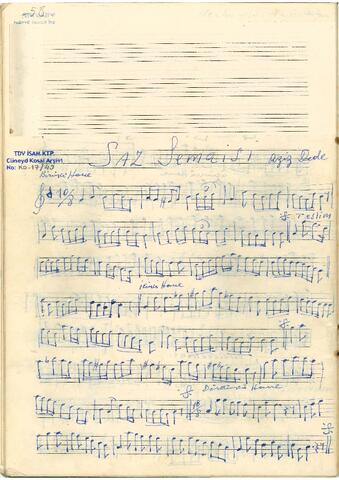 TDV İSAM KTP.
Cüneyd Kosal Arşivi
No: KO-17/43
SAZ SEMAİSİ Aziz Dede
Birinci Hane
10/8
Teslim
İkinci Hane
Dördüncü Hane